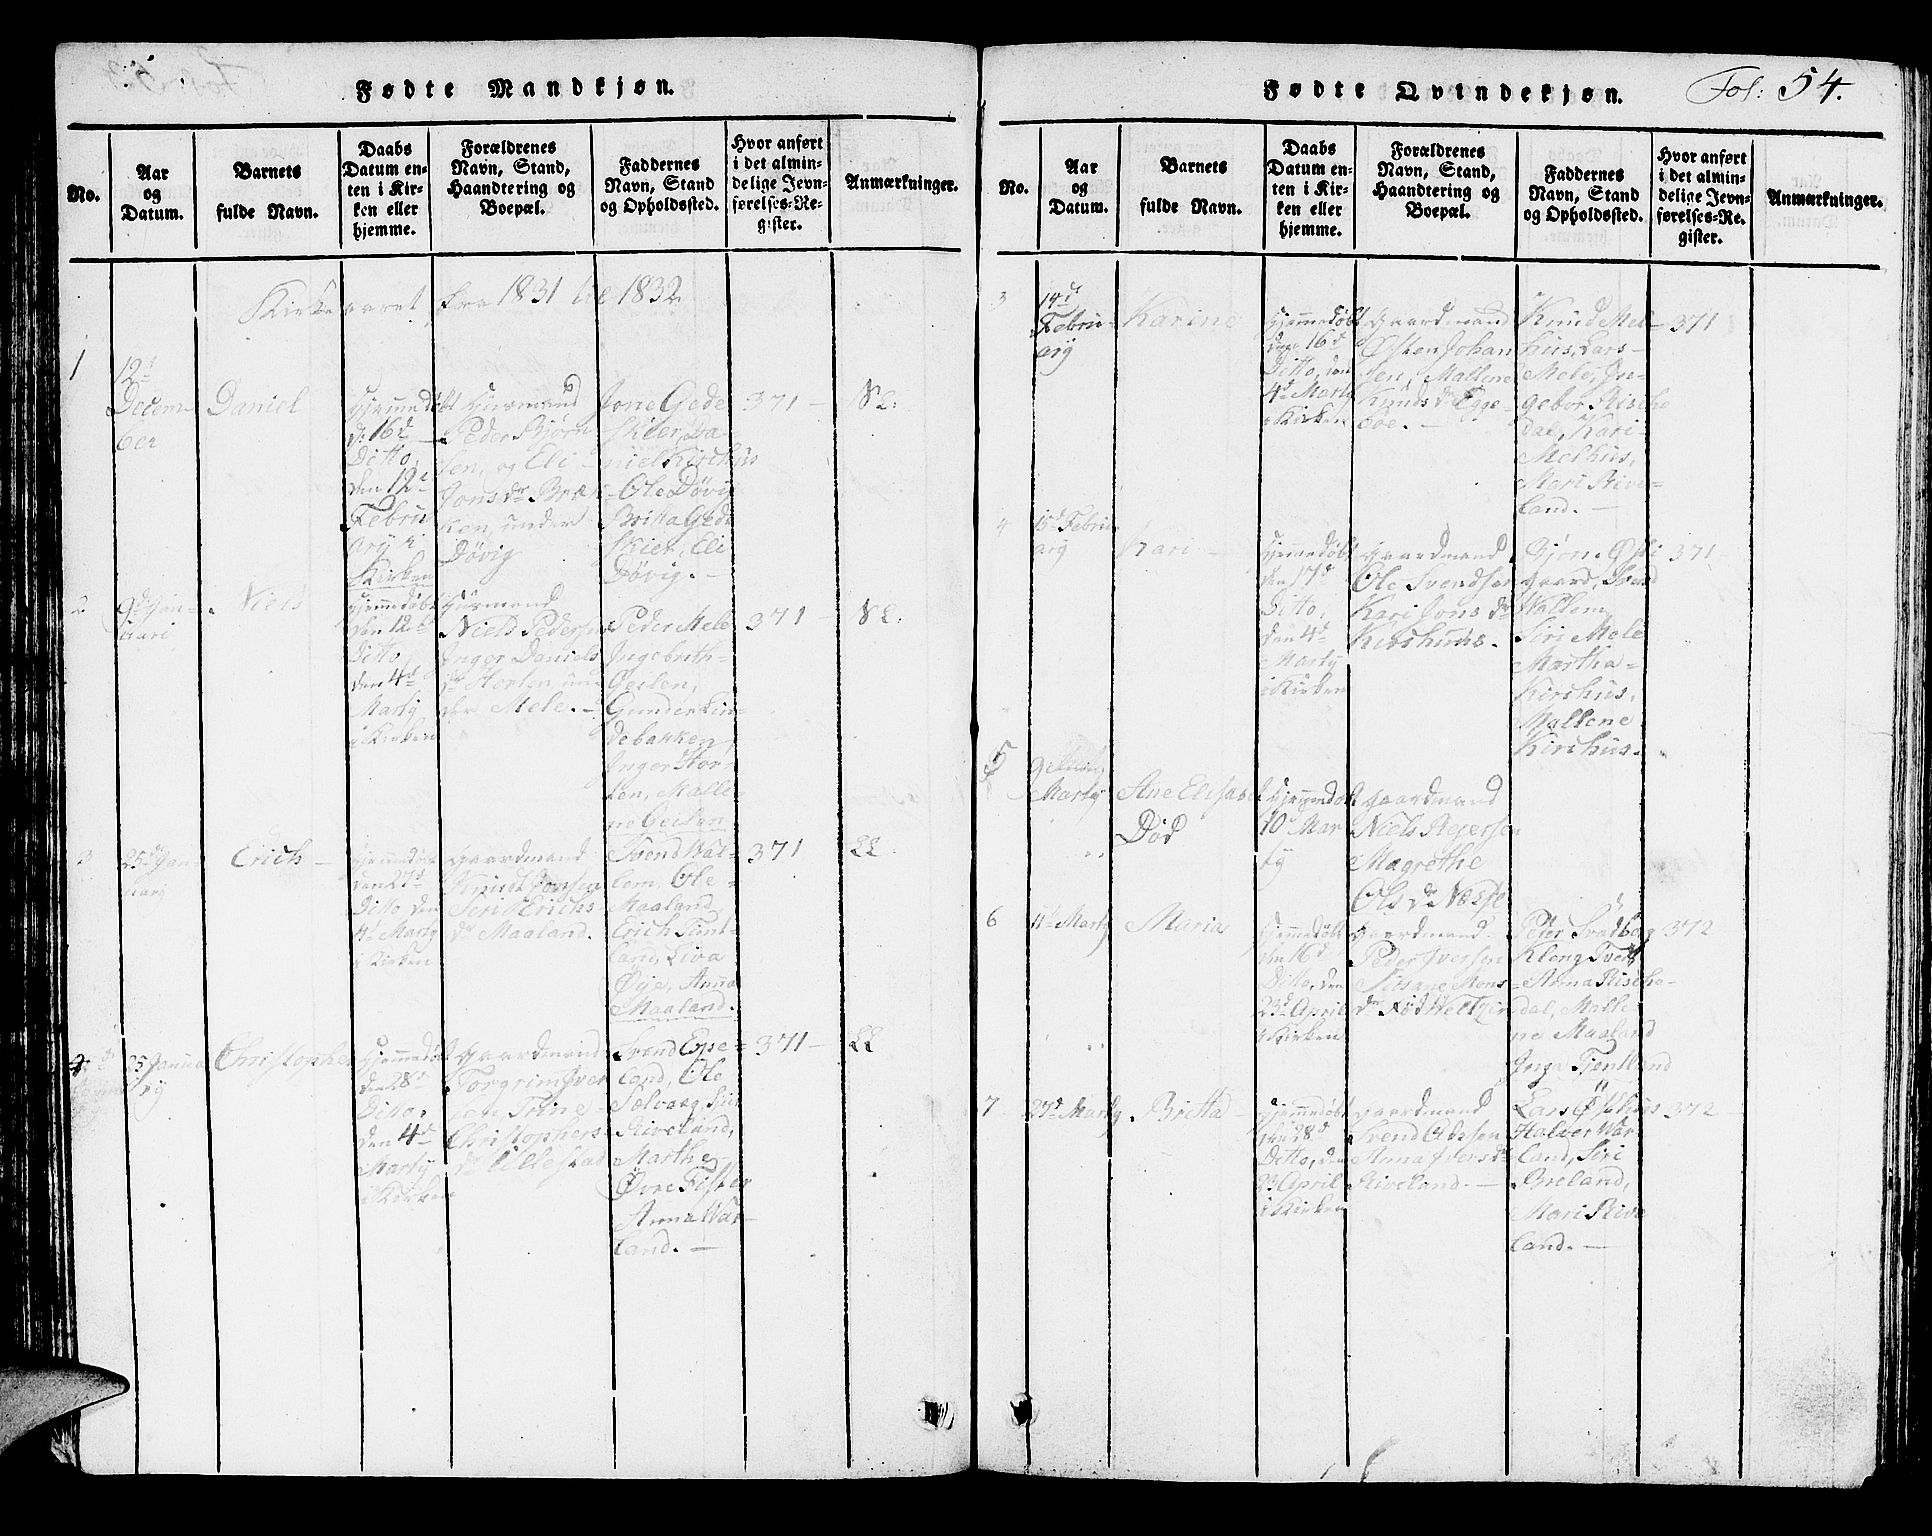 Fødte Mandkjøn.
No.
Aar
og
Datum.
Barnets
fulde Navn.
Daabs
Datum en-
ten i Kir-
ken eller
hjemme.
Forældrenes
Navn, Stand,
Haandtering og
Boepæl.
Faddernes
Navn, Stand
og Opholdssted.
Hvor anført
i det almin-
delige Jevn-
førelses-Re-
gister.
Anmærkninger.
Kirkeaaret fra 1831 til 1832
1
12d
Decem-
ber
Daniel
Hjemmedøbt
d. 16d
Ditto,
den 12d
Febru
ary i
Kirken
Huusmand
Peder Bjørn
sen, og Eli
Jons dr Bræk-
ken, under
Døvig
Jone Gede
skier, Da-
niel Kirchus
Ole Døvig
Britta Gede
skier, Eli
Døvig. —
371 —
2
9d Jan-
uari
Niels
Hjemmedøbt
den 12d
Ditto
den 4d
Marty
i Kirken
Huusmand
Niels Peders
Inger Daniels
dr Horten un
der Mele. —
Peder Mele
Ingebrith-
Geilen,
Gunder Lin-
debakken,
Inger Hor-
ten, Malle-
ne Geilan
371 —
3
25d Jan-
uary
Erich —
Hjemmedøbt
den 27d
Ditto, den
4d Marty
i Kirken
Gaardmand
Knudt Jonsen
Seri Erichs
dr Maaland.
Svend Wat-
lem, Ole
Maaland
Erich Tunt-
land, Siva
Øye, Anna
Maaland.
371
4
25 Janua
ry
Christopher
Hjemmedøbt
den 28d
Ditto,
den 4d
Marty
i Kirken
Gaardmand
Torgrim Iver
sen, Trine
Christophers-
dr Ullestad
Svend Espe-
land, Ole
Selvaag, Siri
Riveland,
Marthe
Øvre Fister
Anna War-
land. —
371 —
Fødte Qvindekjøn.
Fol: 54.
No.
Aar
og
Datum.
Barnets
fulde Navn.
Daabs
Datum en-
ten i Kir-
ken eller
hjemme.
Forældrenes
Navn, Stand,
Haandtering og
Boepæl.
Faddernes
Navn, Stand
og Opholdssted.
Hvor anført
i det almin-
delige Jevn-
førelses-Re-
gister.
Anmærkninger.
3
14d
Febru-
ary
Karine
Hjemmedøbt
den 16d
Ditto, den
4d Marty
i Kirken
Gaardmand
Østen Johan
sen, Mallene
Knuds dr Egge-
boe. —
Knud Mel-
hus, Lars
Mele, In-
gebor Rische
dal, Kari
Melhus,
Mari Rive-
land. —
371
4
15d Febru
ary
Kari —
Hjemmedøbt
den 17d
Ditto,
den 4d
Marty
i Kirken
Gaardmand
Ole Svendsen
Kari Jons dr
Kirshuus.
Bjørn Østi
gaard, Svend
Wallem
Siri Mele
Martha
Kirshus,
Mallene
Kirshus.
371 —
5
9
Marty
Ane Elisabet
Død
Hjemmedøbt
10 Mar
ty
Gaardmand
Niels Asgersen
Magrethe
Ols dr Næsse
6
11d Marty
Maria
Hjemmedøbt
den 16d
Ditto, den
23d April
i Kirken
Gaardmand
Peder Iversen
Mons-
dr
Peder Svadberg
Kleng
Anna Rische-
dal, Malle
ne Maaland
Inga Fjentland
372
7
27d Marty
Britta —
Hjemmedøbt
den 28d
Ditto, den
23 April
i Kirken
Gaardmand
Svend
Anna Ivers dr
Riveland. —
Lars Østhus
Halvor War-
land, Siri
Breland,
Mari Rive
land. —
372